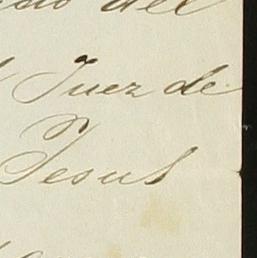 del
Juez de
Jesus